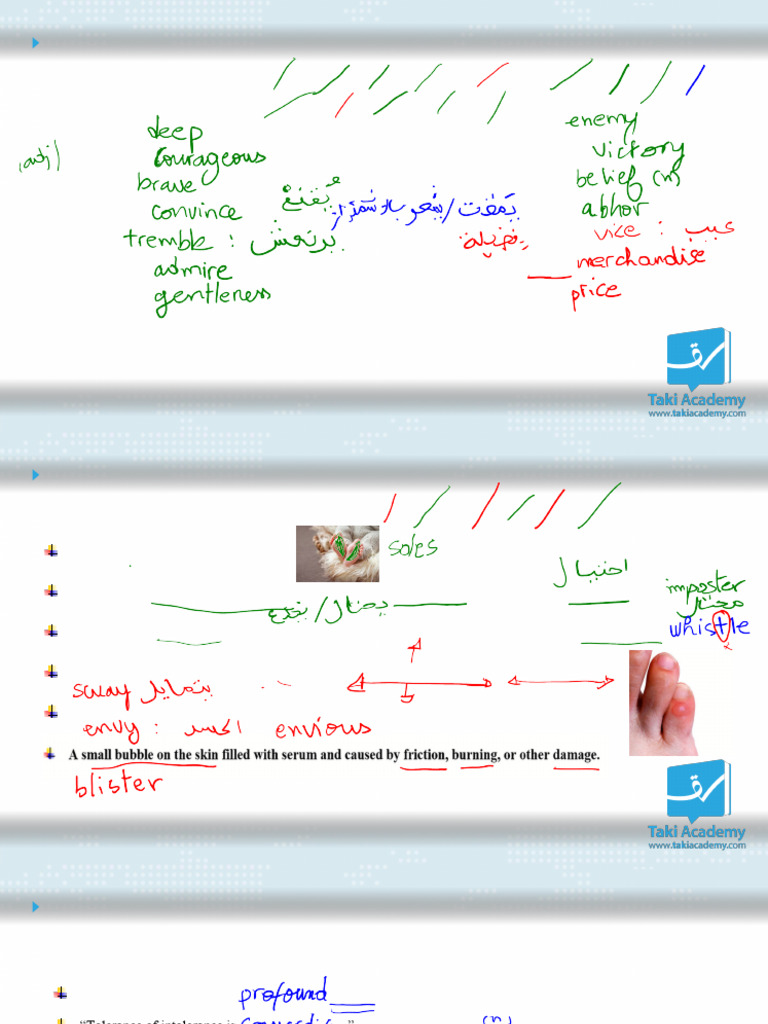 deep
enemy
, adj)
courageous
victory
brave
belief (n)
convince
يُقنع
يَمقت / يشعر بالاشمئزاز
abhor
tremble : يرتعش
فضيلة
vice : عيب
admire
merchandise
gentleness
price
Taki Academy
www.takiacademy.com
soles
احتيال
imposter
يحتال / يخدع
محتال
whistle
sway يتمايل
envy : الحسد envious
A small bubble on the skin filled with serum and caused by friction, burning, or other damage.
blister
Taki Academy
www.takiacademy.com
profound
(n)